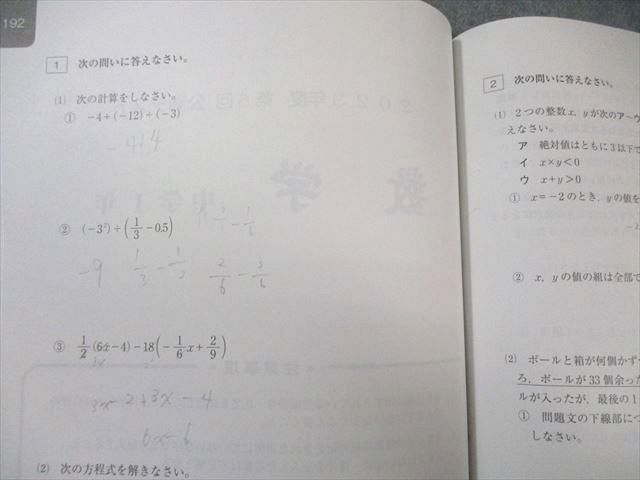 192
1 次の問いに答えなさい。
(1) 次の計算をしなさい。
① -4+(-12)÷(-3)
-4+4
② (-3²)÷(1/3-0.5)
-1/6
-9 1/3-1/2 2/6-3/6
③ 1/2(6x-4)-18(-1/6x+2/9)
3x
3x-2+3x-4
6x-6
(2) 次の方程式を解きなさい。
2 次の問いに答えなさい。
(1) 2つの整数x, yが次のア～ウ
えなさい。
ア 絶対値はともに3以下で
イ x×y<0
ウ x+y>0
① x=-2のとき, yの値を
② x, yの値の組は全部で
(2) ボールと箱が何個かず
ろ, ボールが33個余った
ルが入ったが, 最後の1
① 問題文の下線部につ
しなさい。